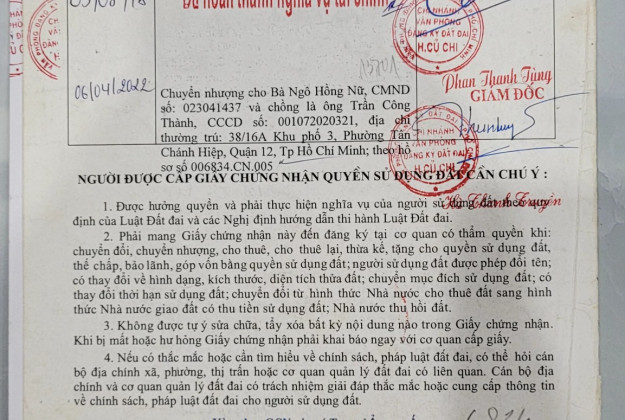 Đã hoàn thành nghĩa vụ tài chính
CHI NHÁNH
VĂN PHÒNG
ĐĂNG KÝ ĐẤT ĐAI
H.CỦ CHI
Phan Thanh Tùng
GIÁM ĐỐC
06/04/2022
Chuyển nhượng cho Bà Ngô Hồng Nữ, CMND
số: 023041437 và chồng là ông Trần Công
Thành, CCCD số: 001072020321, địa chỉ
thường trú: 38/16A Khu phố 3, Phường Tân
Chánh Hiệp, Quận 12, Tp Hồ Chí Minh; theo hồ
sơ số 006834.CN.005
CHI NHÁNH
VĂN PHÒNG
ĐĂNG KÝ ĐẤT ĐAI
H.CỦ CHI
NGƯỜI ĐƯỢC CẤP GIẤY CHỨNG NHẬN QUYỀN SỬ DỤNG ĐẤT CẦN CHÚ Ý :
1. Được hưởng quyền và phải thực hiện nghĩa vụ của người sử dụng đất theo quy
định của Luật Đất đai và các Nghị định hướng dẫn thi hành Luật Đất đai.
2. Phải mang Giấy chứng nhận này đến đăng ký tại cơ quan có thẩm quyền khi:
chuyển đổi, chuyển nhượng, cho thuê, cho thuê lại, thừa kế, tặng cho quyền sử dụng đất,
thế chấp, bảo lãnh, góp vốn bằng quyền sử dụng đất; người sử dụng đất được phép đổi tên;
có thay đổi về hình dạng, kích thước, diện tích thửa đất; chuyển mục đích sử dụng đất; có
thay đổi thời hạn sử dụng đất; chuyển đổi từ hình thức Nhà nước cho thuê đất sang hình
thức Nhà nước giao đất có thu tiền sử dụng đất; Nhà nước thu hồi đất.
3. Không được tự ý sửa chữa, tẩy xóa bất kỳ nội dung nào trong Giấy chứng nhận.
Khi bị mất hoặc hư hỏng Giấy chứng nhận phải khai báo ngay với cơ quan cấp giấy.
4. Nếu có thắc mắc hoặc cần tìm hiểu về chính sách, pháp luật đất đai, có thể hỏi cán
bộ địa chính xã, phường, thị trấn hoặc cơ quan quản lý đất đai có liên quan. Cán bộ địa
chính và cơ quan quản lý đất đai có trách nhiệm giải đáp thắc mắc hoặc cung cấp thông tin
về chính sách, pháp luật đất đai cho người sử dụng đất.